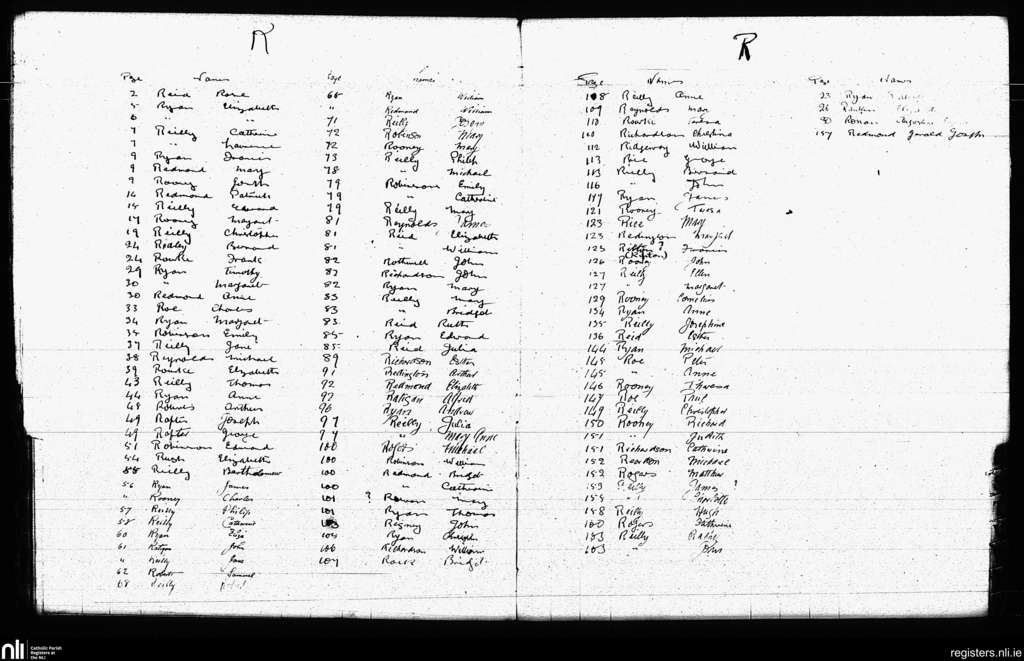 R
Page Names
2 Reid Rose
5 Ryan Elizabeth
6 " "
7 Reilly Catherine
7 "
9 Ryan Francis
9 Redmond Mary
9 Rooney Joseph
14 Redmond Patrick
15 Reilly Edward
17 Rooney Margaret
19 Reilly Christopher
24 Bernard
24 Rourke Frank
29 Ryan Timothy
30 " Margaret
30 Redmond Anne
33 Roe Charles
34 Ryan Margaret
35 Robinson Emily
37 Reilly Jane
38 Reynolds Michael
39 Rourke Elizabeth
43 Reilly Thomas
44 Ryan Anne
48 Arthur
49 Rafter Joseph
49 Rafter George
51 Robinson Edmond
54 Rush Elizabeth
55 Reilly Bartholomew
56 Ryan James
" Rooney Charles
57 Reilly Philip
58 Reilly Catherine
60 Ryan Eliza
61 John
" Reilly Jane
62 Samuel
68 Reilly
Page Names
68 Ryan William
" Redmond William
71 Reilly
72 Robinson Mary
72 Rooney Mary
73 Reilly Philip
78 " Michael
79 Robinson Emily
79 " Catherine
79 Reilly Mary
81 Reynolds James
81 Reid Elizabeth
81 " William
82 Rothwell John
82 Richardson John
82 Ryan Mary
83 Reilly Mary
83 " Bridget
83 Reid Ruth
85 Ryan Edward
85 Reid Julia
89 Richardson Esther
91 Redington Arthur
92 Redmond Elizabeth
92 Alfred
96 Ryan Andrew
97 Reilly Julia
97 " Mary Anne
100 Michael
100 Robinson William
100 Redmond Bridget
100 " Catherine
101 ? Rowan Mary
101 Ryan Thomas
103 Regney John
104 Ryan Joseph
106 Richardson William
107 Bridget
R
Page Names
108 Reilly Anne
109 Reynolds Mary
110 Rourke Teresa
110 Richardson Christina
112 Ridgeway William
113 Rice George
113 Reilly Bernard
116 " John
117 Ryan James
121 Rooney Teresa
123 Rice Mary
123 Redington Margaret
125 ? Francis
126 Rooney John
127 Reilly Ellen
127 " Margaret
129 Rooney Cornelius
134 Ryan Anne
135 Reilly Josephine
136 Reid Esther
144 Ryan Michael
145 Roe Peter
145 " Anne
146 Rooney Thomas
147 Roe
149 Reilly Christopher
150 Rooney Richard
151 " Judith
151 Richardson Catherine
152 Reardon Michael
152 Rogers Matthew
153 Reilly James ?
155 " Charlotte
158 Reilly Hugh
160 Rogers Catherine
163 Reilly
163 " John
Page Names
23 Ryan
26
30 Ronan
157 Redmond Gerald Joseph
nli
Catholic Parish
Registers at
the NLI
registers.nli.ie